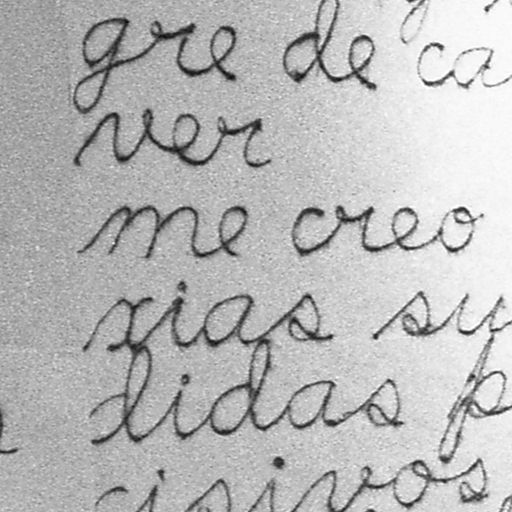 gre de ca
ver
me creo
xias su
didas p
cisivos